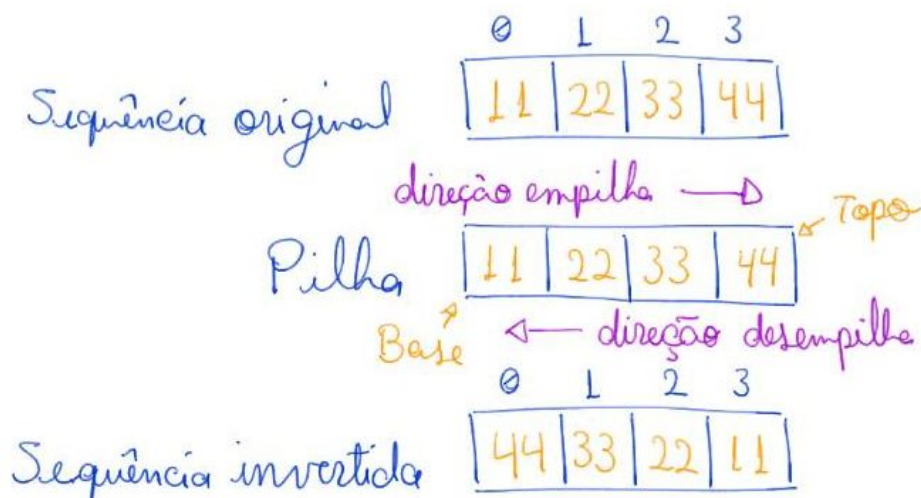 0 1 2 3
Sequência original 11 22 33 44
direção empilha
Topo
Pilha 11 22 33 44
Base
direção desempilha
0 1 2 3
Sequência invertida 44 33 22 11